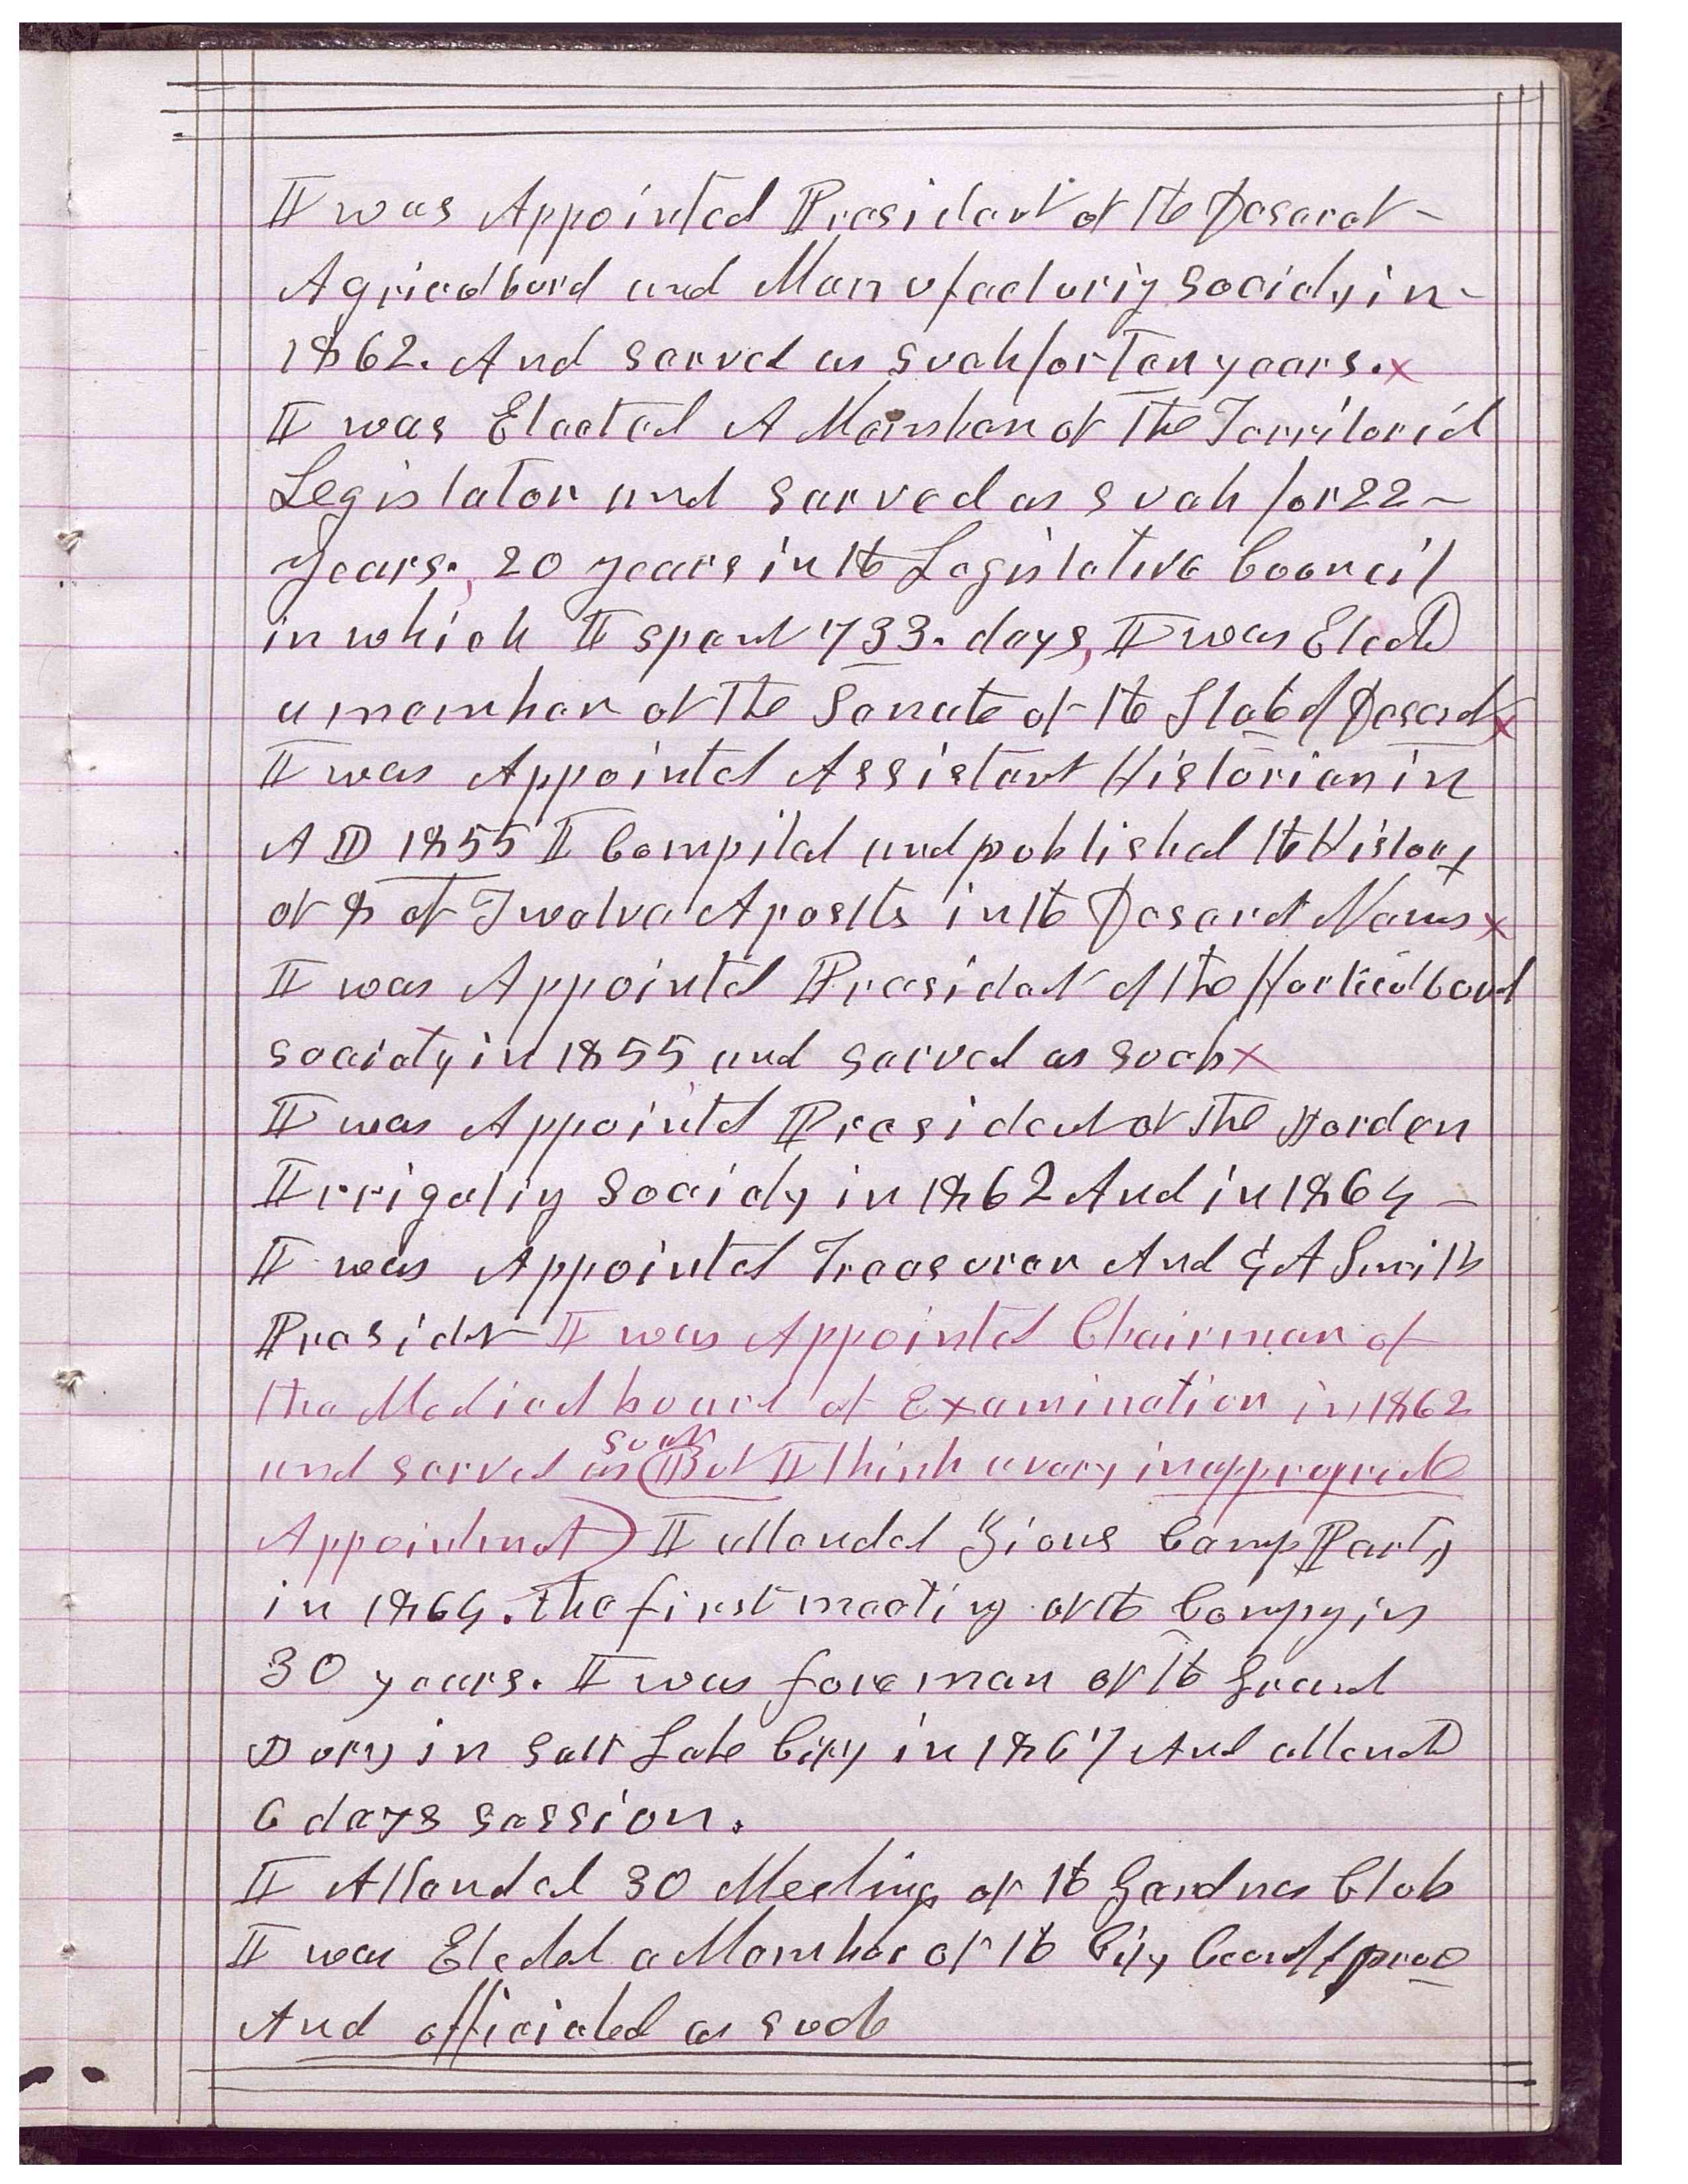 I was Appointed President of the Deseret
Agricultural and Manufacturing Society in
1862. And served as such for Ten years. X
I was Elected A Member of The Territorial
Legislator and served as such for 22
years. 20 years in the Legislative Council
in which I spent 733. days, I was Elected
a member of The Senate of the State of Deseret X
I was Appointed Assistant Historian in
AD 1855 I Compiled and published the History
of & of Twelve Apostles in the Deseret News X
I was Appointed President of the Horticultural
society in 1855 and served as such X
I was Appointed President of The Jorden
Irrigating Society in 1862 And in 1864
I was Appointed Treasurer And G A Smith
President I was Appointed Chairman of
the Medical board of Examination in 1862
such
and served as (But I think a very inappropriate
Appointment) I attended Zions Camp Party
in 1864. the first meeting of the Company in
30 years. I was foreman of the Grand
Jury in Salt Lake City in 1867 And attended
6 days session.
I Attended 30 Meetings of the Gardners Club
I was Elected a Member of the City
And officiated as such